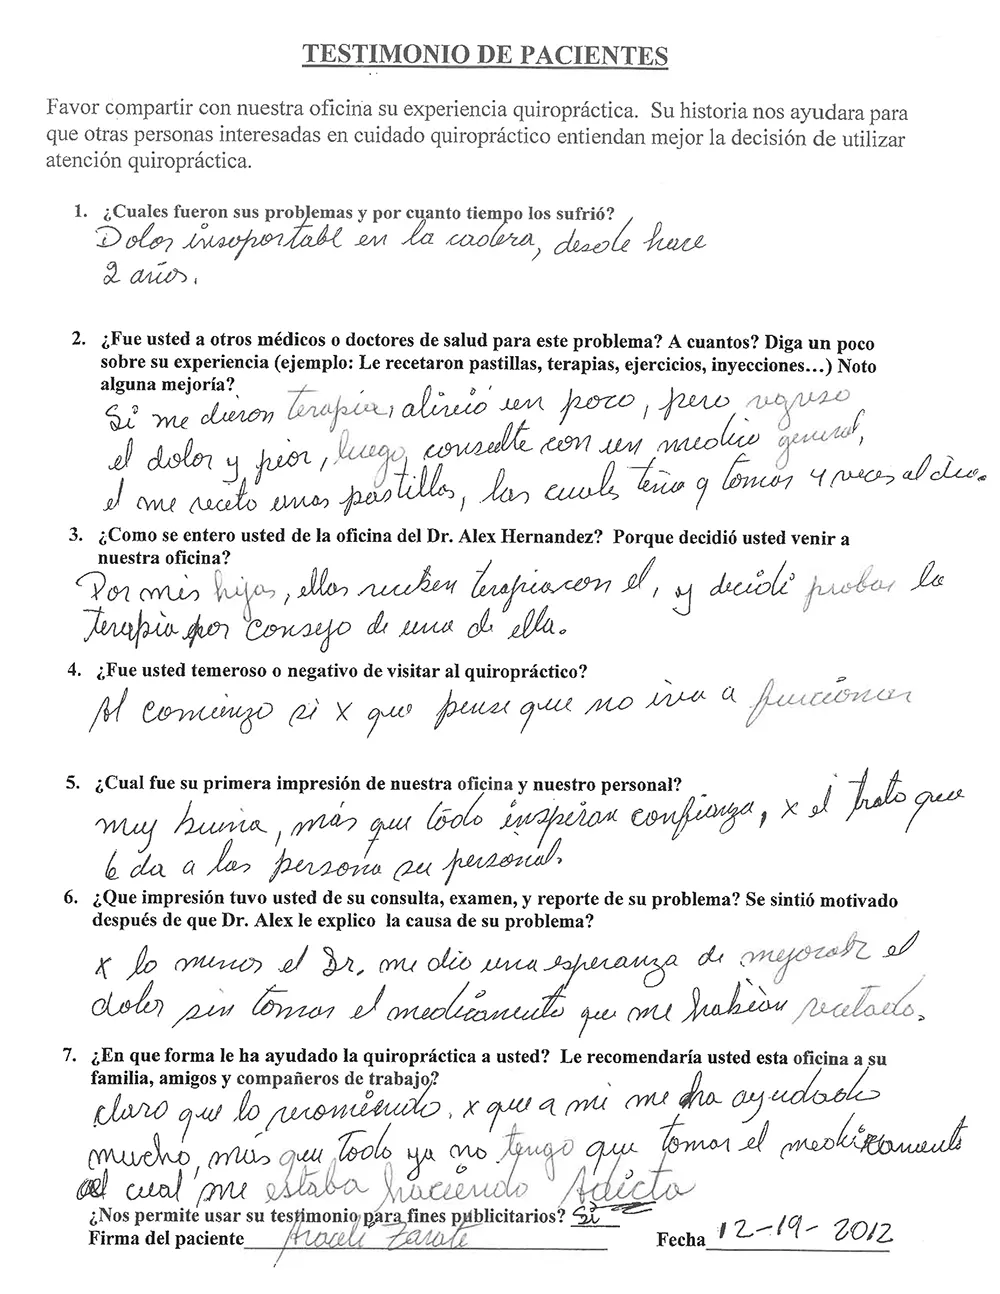 TESTIMONIO DE PACIENTES
Favor compartir con nuestra oficina su experiencia quiropráctica. Su historia nos ayudara para
que otras personas interesadas en cuidado quiropráctico entiendan mejor la decisión de utilizar
atención quiropráctica.
1. ¿Cuales fueron sus problemas y por cuanto tiempo los sufrió?
Dolor insoportabl en la cadera, desde hace
2 años.
2. ¿Fue usted a otros médicos o doctores de salud para este problema? A cuantos? Diga un poco
sobre su experiencia (ejemplo: Le recetaron pastillas, terapias, ejercicios, inyecciones...) Noto
alguna mejoría?
Si me dieron terapia, alivió un poco, pero regreso
el dolor y peor, luego, consulte con un medico general,
el me receto unas pastillas, las cuales tenia q tomar 4 veces al dia.
3. ¿Como se entero usted de la oficina del Dr. Alex Hernandez? Porque decidió usted venir a
nuestra oficina?
Por mis hijas, ellas reciben terapia con el, y decidi probar la
terapia por consejo de una de ella.
4. ¿Fue usted temeroso o negativo de visitar al quiropráctico?
Al comienzo si x que pense que no iva a funcionar
5. ¿Cual fue su primera impresión de nuestra oficina y nuestro personal?
muy buena, más que todo inspiran confianza, x el trato que
le da a las persona su personal.
6. ¿Que impresión tuvo usted de su consulta, examen, y reporte de su problema? Se sintió motivado
después de que Dr. Alex le explico la causa de su problema?
x lo menos el Dr. me dio una esperanza de mejorar el
dolor sin tomar el medicamento que me habian recetado.
7. ¿En que forma le ha ayudado la quiropráctica a usted? Le recomendaría usted esta oficina a su
familia, amigos y compañeros de trabajo?
claro que lo recomiendo, x que a mi me ha ayudado
mucho, más que todo ya no tengo que tomar el medicamento
el cual me estaba haciendo Adicta
¿Nos permite usar su testimonio para fines publicitarios? Si
Firma del paciente Araceli Zarate Fecha 12-19-2012